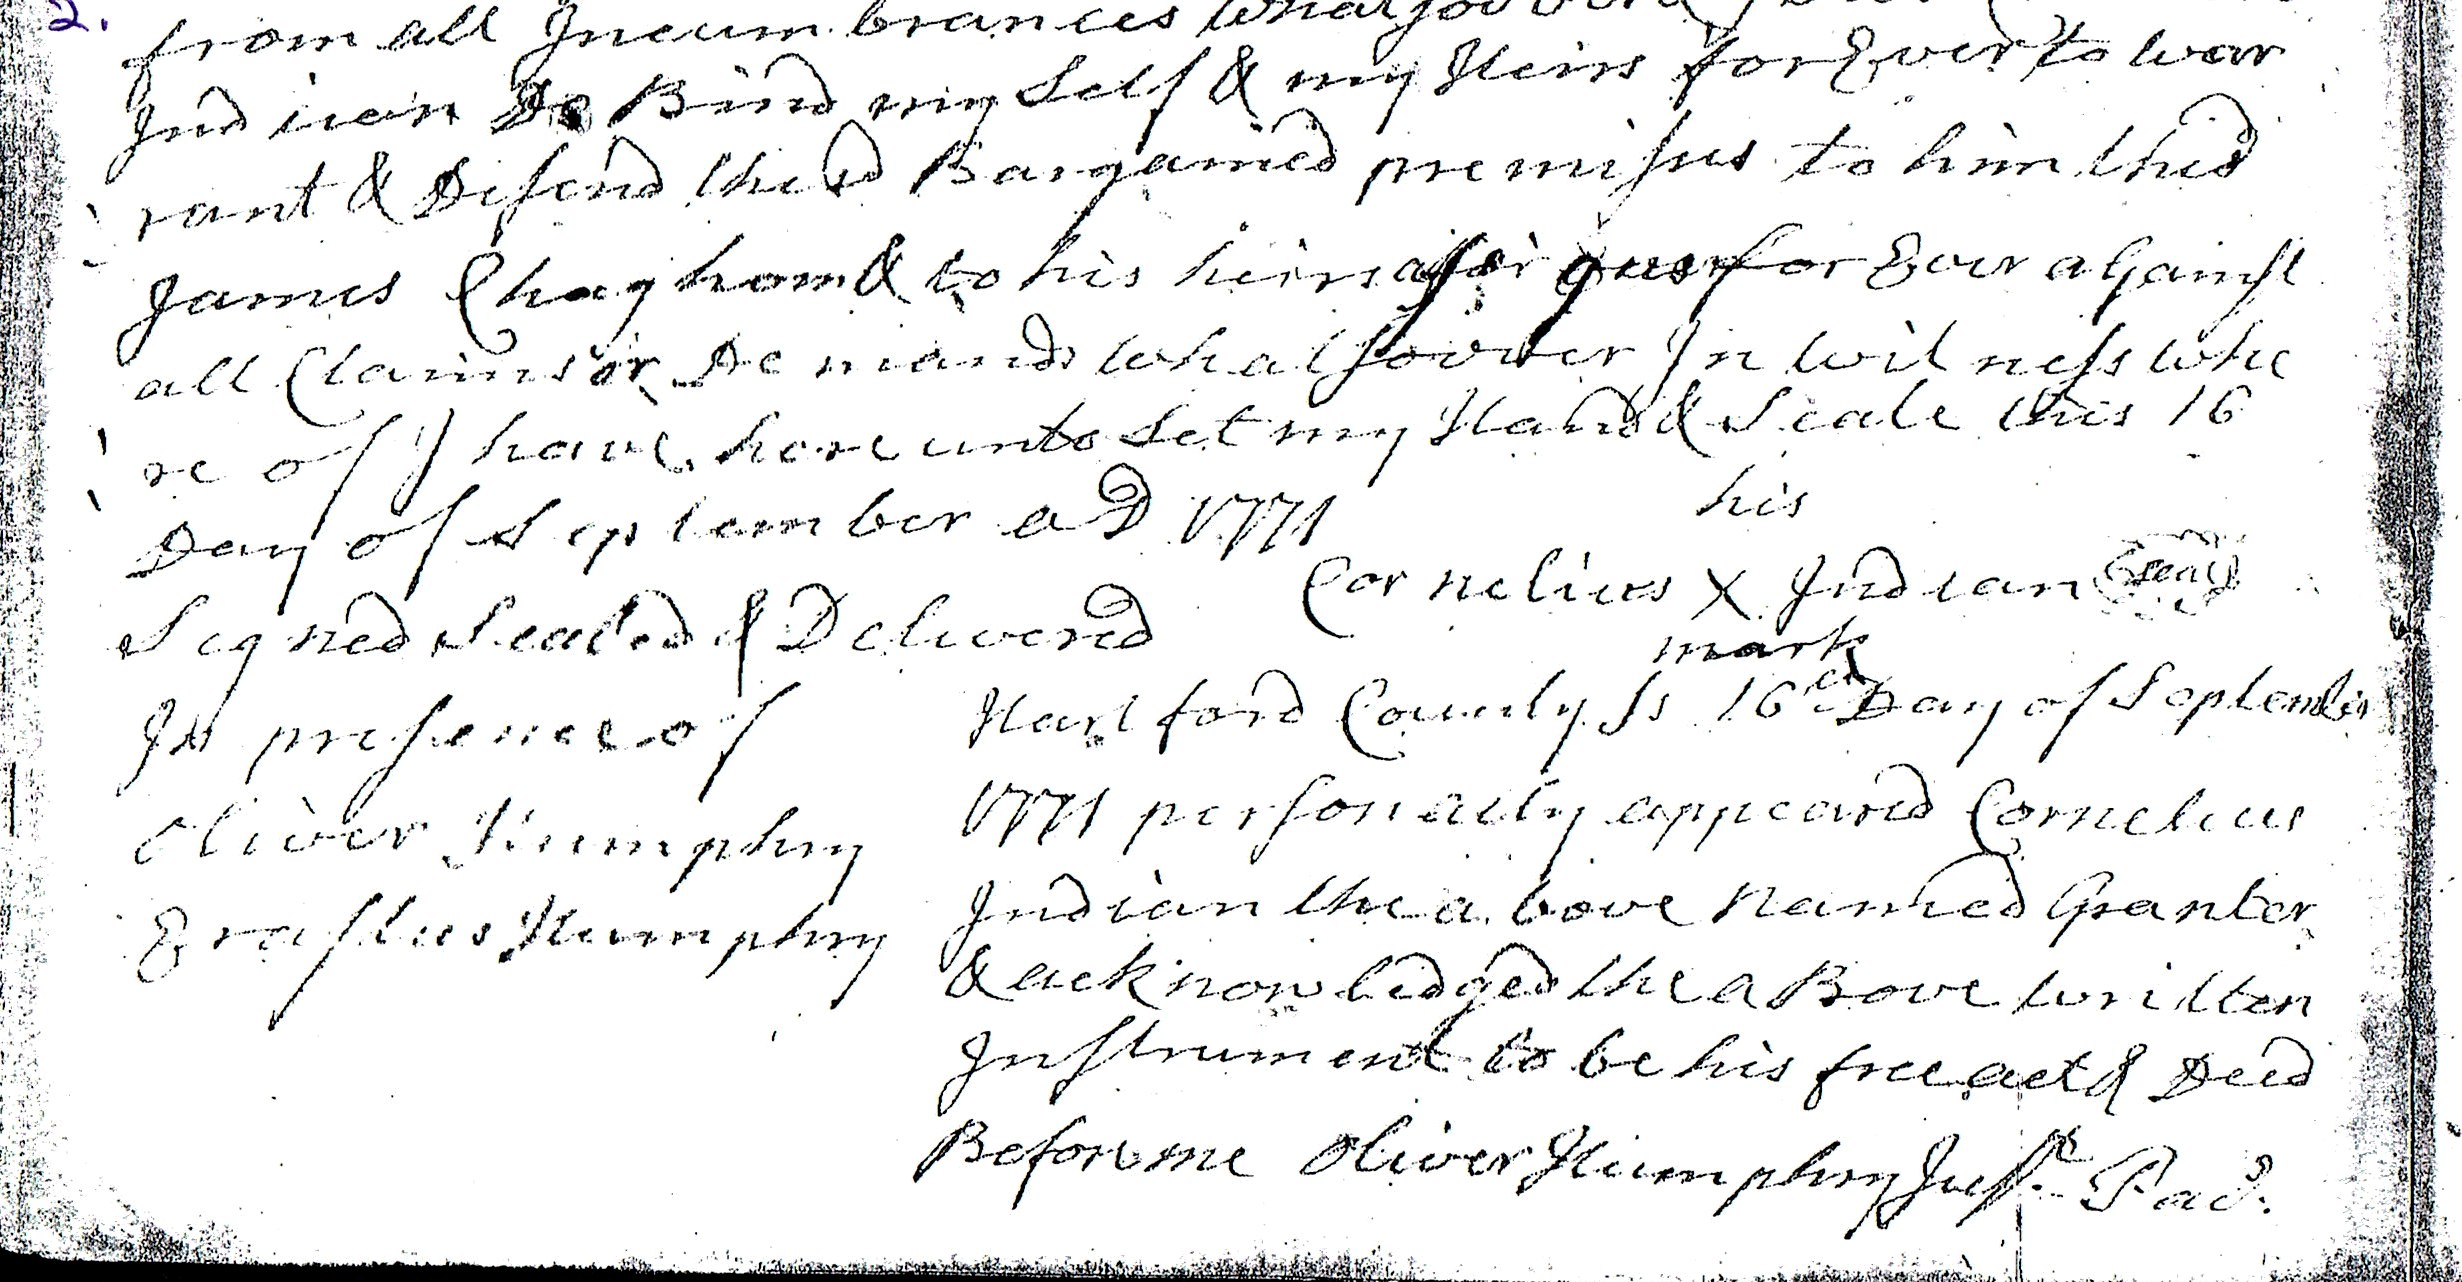 2.
from all Incumbrances Whatsoever
Indian Do Bind my Self & my Heirs for Ever to war
rant & Defend the sd Bargained premises to him the sd
James Chaghom & to his heirs assigns for Ever against
all Claims or Demands Whatsoever In witness whe
re of I have here unto Set my Hand & Seale this 16
Day of September a D 1771
his
Cornelius X Indian (Seal)
mark
Signed Sealed & Delivered
In presence of
Oliver Humphry
Erastus Humphry
Hartford County Ss 16th Day of September
1771 personally appeared Cornelius
Indian the a bove Named Granter
& acknowledged the a Bove written
Instrument to be his free act & Deed
Before me Oliver Humphry Just. Pac.